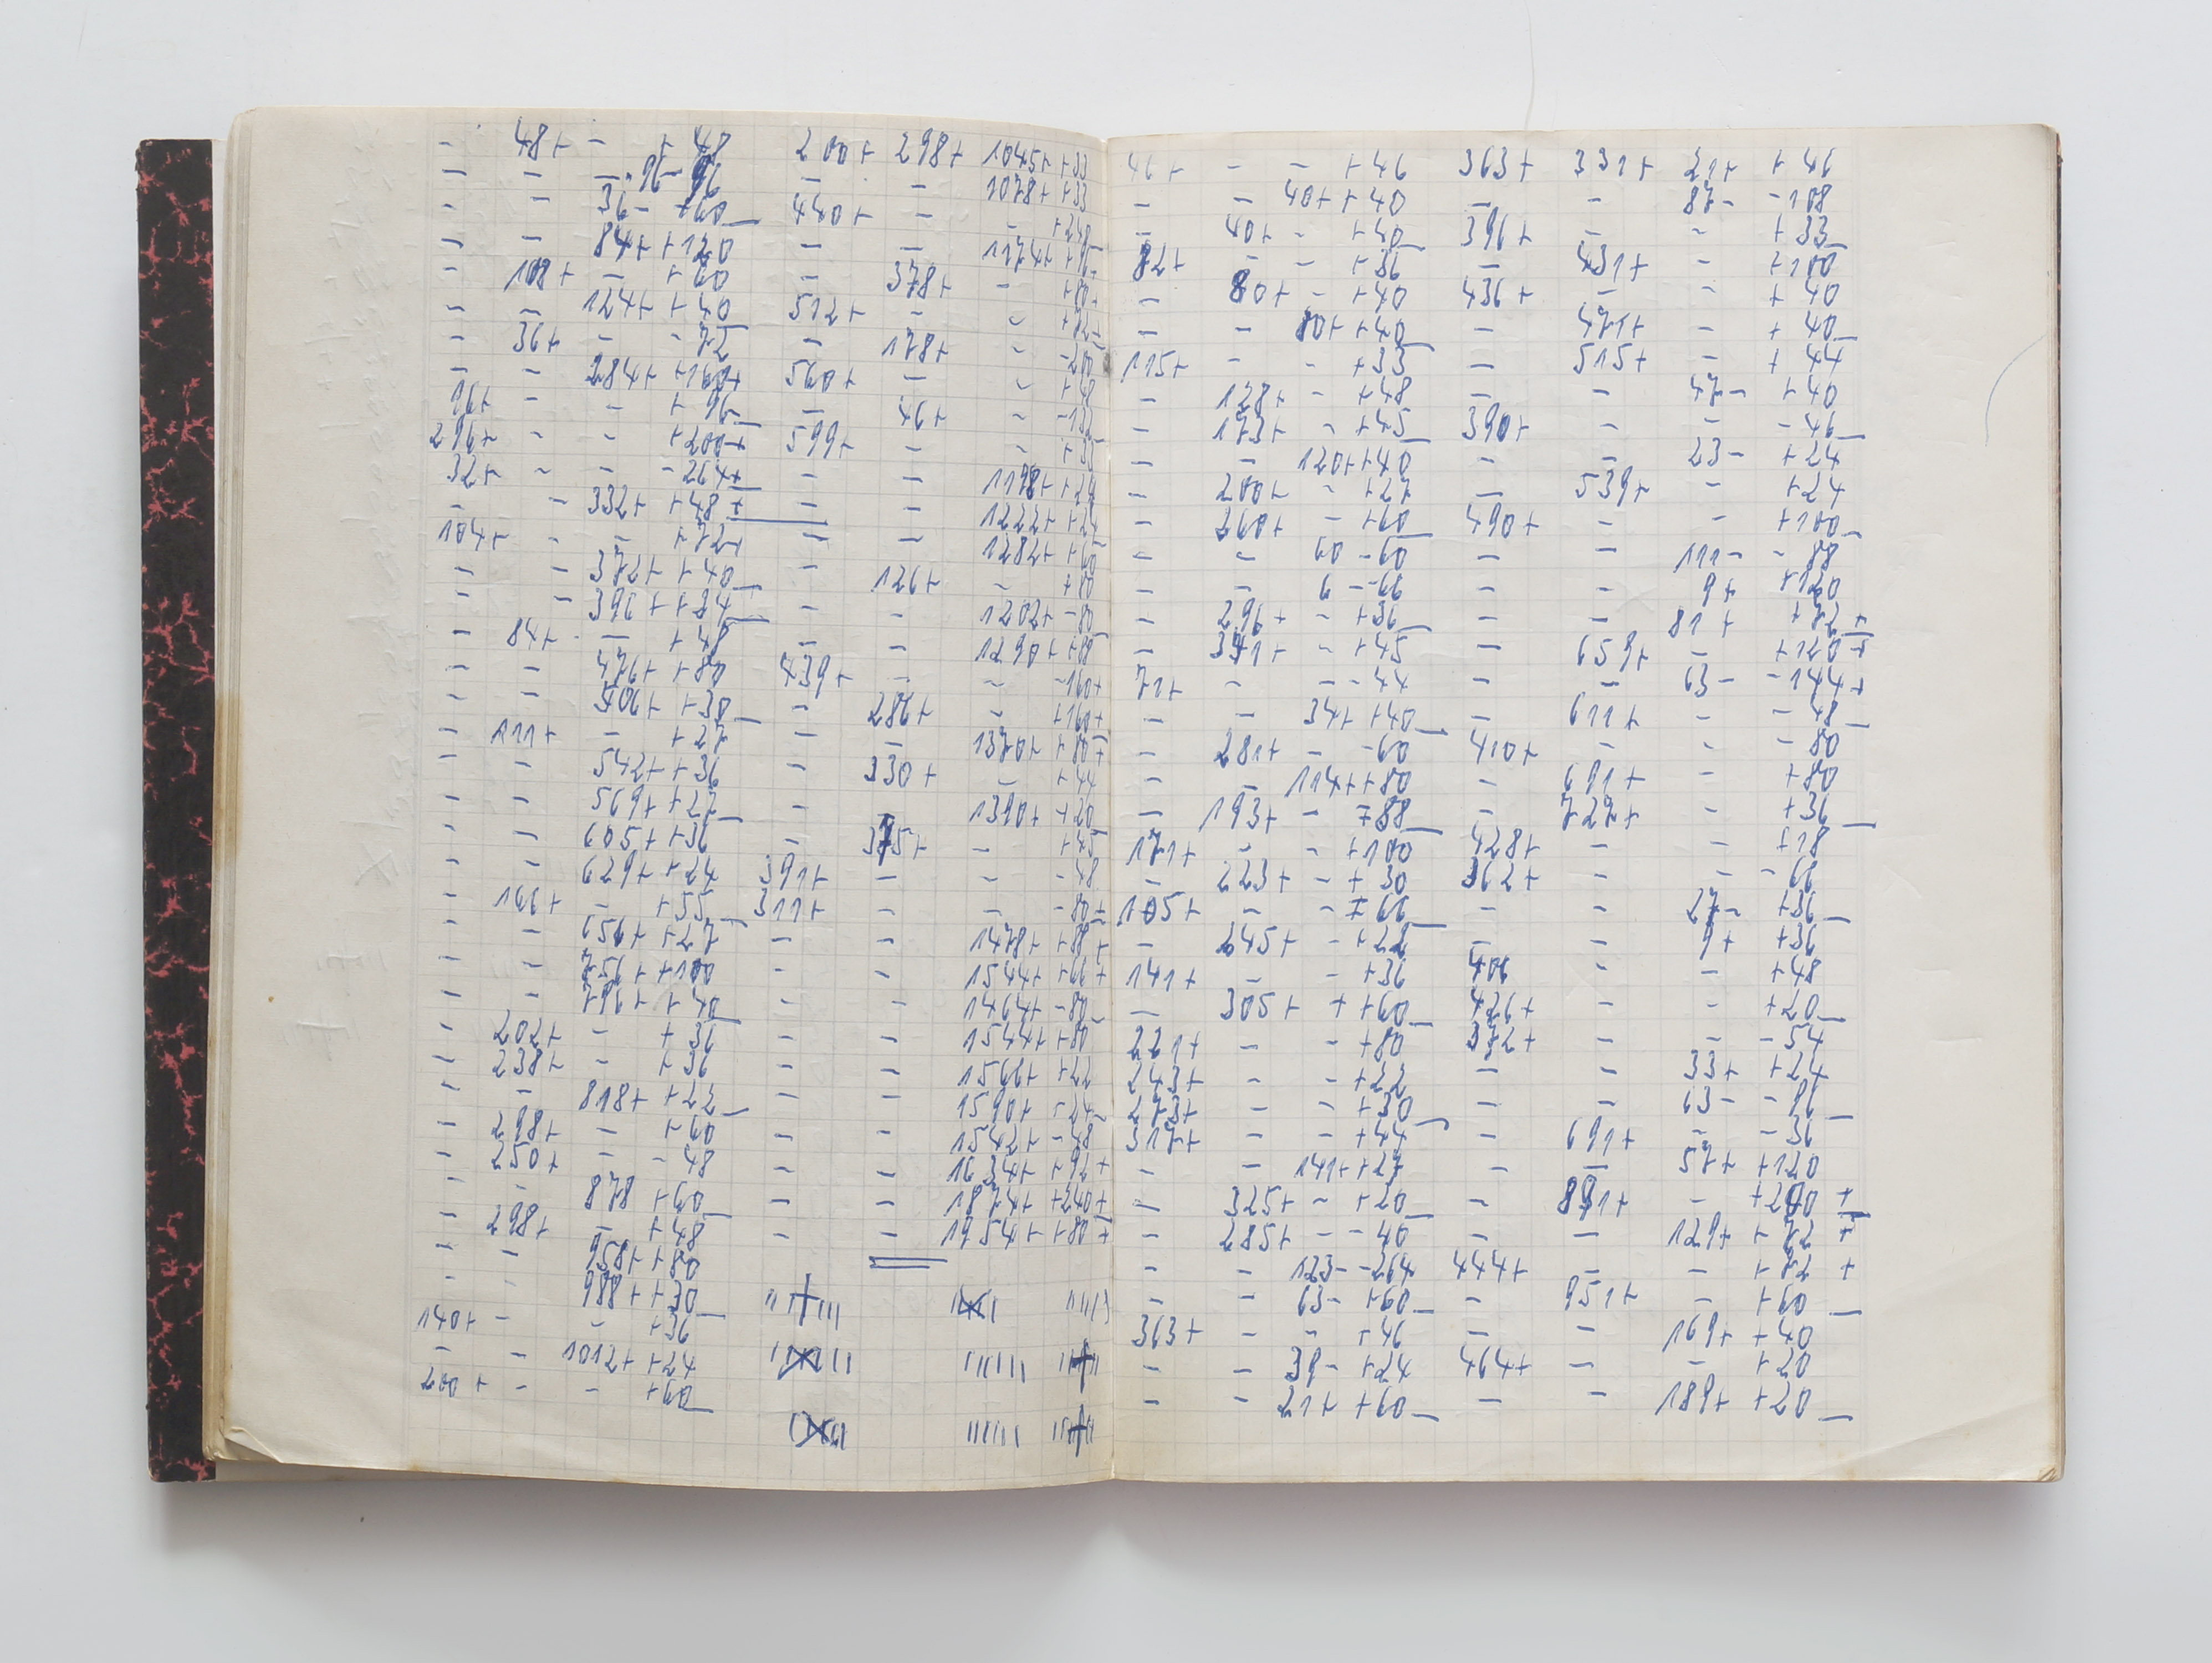 - 48+ - +48
- - - 96- 96
- - 36- +60
- - 84+ +120
- 108+ - +60
- - 124+ +40
- 36+ - -72
- - 284+ +160+
96+ - - +96
296+ - - +200+
32+ - - -264+
- - 332+ +48+
104+ - - +72+
- - 372+ +40
- - 396+ +24
- 84+ - +48
- - 476+ +80
- - 506+ +30
- 111+ - +27
- - 542+ +36
- - 569+ +27
- - 605+ +36
- - 629+ +24
- 166+ - +55
- - 656+ +27
- - 756+ +100
- - 796+ +40
- 202+ - +36
- 238+ - +36
- - 818+ +22
- 298+ - +60
- 250+ - -48
- - 878 +60
- 298+ - +48
- - 958+ +80
- - 988+ +30
140+ - - +36
- - 1012+ +24
200+ - - +60
200+ 298+ 1045+ +33
- - 1078+ +33
440+ - - +240
- - 1174+ +96
- 378+ - +80
512+ - - +72
- 178+ - -200
560+ - - +48
- 46+ - -132
599+ - -
- - 1198+ +24
- - 1222+ +24
- - 1282+ +60
- 126+ - +80
- - 1202+ -80
- - 1290+ +88
439+ - - -160+
- 286+ - +160+
- - 1370+ +80+
- 330+ - +44
- - 1390+ +20
- 375+ - +45
391+ - - -48
311+ - - -80+
- - 1478+ +88+
- - 1544+ +66+
- - 1464+ -80
- - 1544+ +80
- - 1566+ +22
- - 1590+ +24
- - 1542+ -48
- - 1634+ +92+
- - 1874+ +240+
- - 1954+ +80+
46+ - - +46
- - 40+ +40
- 40+ - +40
82+ - - +36
- 80+ - +40
- - 80+ +40
115+ - - +33
- 128+ - +48
- 173+ - +45
- - 120+ +40
- 200+ - +27
- 260+ - +60
- - 60 -60
- - 6 - -66
- 296+ - +36
- 341+ - +45
71+ - - -44
- - 34+ +40
- 281+ - -60
- - 114+ +80
- 193+ - -88
171+ - - +100
- 223+ - +30
105+ - - -66
- 245+ - +22
141+ - - +36
- 305+ + +60
221+ - - +80
243+ - - +22
273+ - - +30
317+ - - +44
- - 141+ +27
- 325+ - +20
- 285+ - -40
- - 123- -264
- - 63- +60
363+ - - +46
- - 39- +24
- - 21+ +60
363+ 331+ 21+ +46
- - 87- -108
396+ - - +33
- 431+ - +100
436+ - - +40
- 471+ - +40
- 515+ - +44
- - 47- +40
390+ - - -46
- - 23- +24
- 539+ - +24
490+ - - +100
- - 111- -88
- - 9+ +120
- - 81+ +72+
- 659+ - +120+
- - 63- -144+
- 611+ - -48
410+ - - -80
- 691+ - +80
- 727+ - +36
428+ - - +18
362+ - - -66
- - 27- +36
- - 9+ +36
406 - - +48
426+ - - +20
372+ - - -54
- - 33+ +24
- - 63- -96
- 691+ - -36
- - 57+ +120
- 891+ - +200+
- - 129+ +72+
444+ - - +72+
- 951+ - +60
- - 169+ +40
464+ - - +20
- - 189+ +20